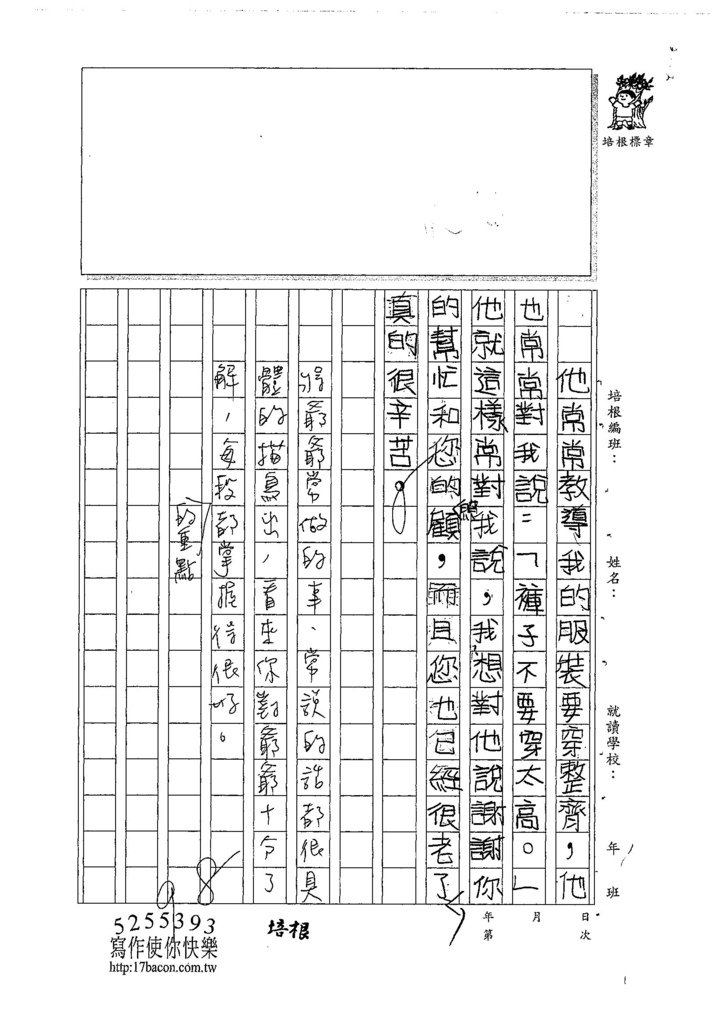 培根標章
培根編班：
姓名：
就讀學校：
年
班
他常常教導我的服裝要穿整齊，他
也常常對我說：「褲子不要穿太高。」
他就這樣常對我說，我想對他說謝謝你
的幫忙和您的顧，而且您也已經很老了
照
真的很辛苦。
將爺爺常做的事、常說的話都很具
體的描寫出，看來你對爺爺十分了
解，每段都掌握得很好。
的重點
日
月
年
次
第
培根
5255393
寫作使你快樂
http:17bacon.com.tw